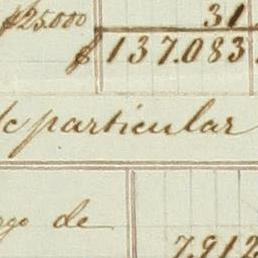 $25.000 31
$ 137.083
particular
de
7.912